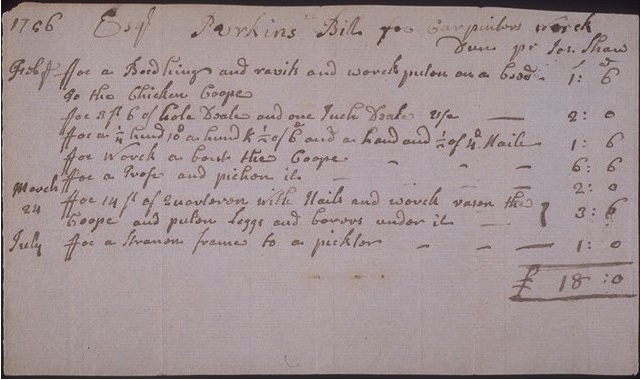 1756 Esqr Perkins Bill for Carpintors Worck
Dun pr Jos. Shaw
Febr ffor a and and worck puton on a 1: 6
to the Chicken Coope
ffor 3 ft 6 of hole Deale and one Inch Deale Use — 2: 0
ffor a 1/4 hund 10d a hund & 1/2 of 6d and a hand and 1/2 of 4d Nails 1: 6
ffor Worck a bout the Coope - - - 6: 6
ffor a and it - - 2: 0
March ffor 14 ft of Quarteren with Nails and worck the
24 Coope and puton Leggs and under it — 3: 6
July ffor a frame to a picktor - - — 1: 0
£ 18 :0